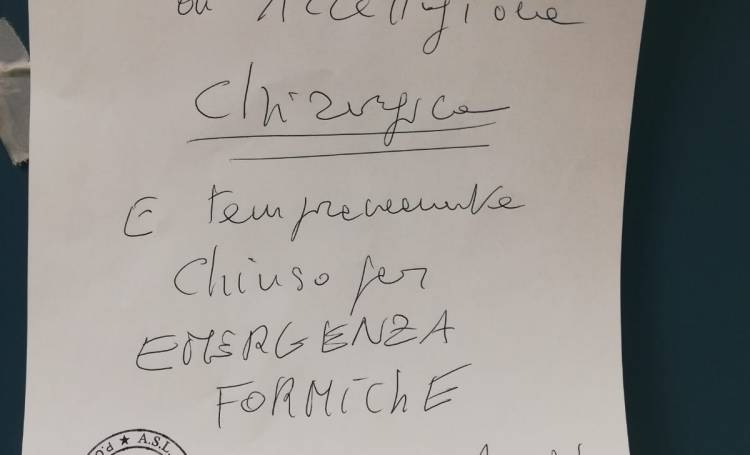 di Accettazione
Chirurgica
E temporaneamente
Chiuso per
EMERGENZA
FORMICHE
A.S.L.